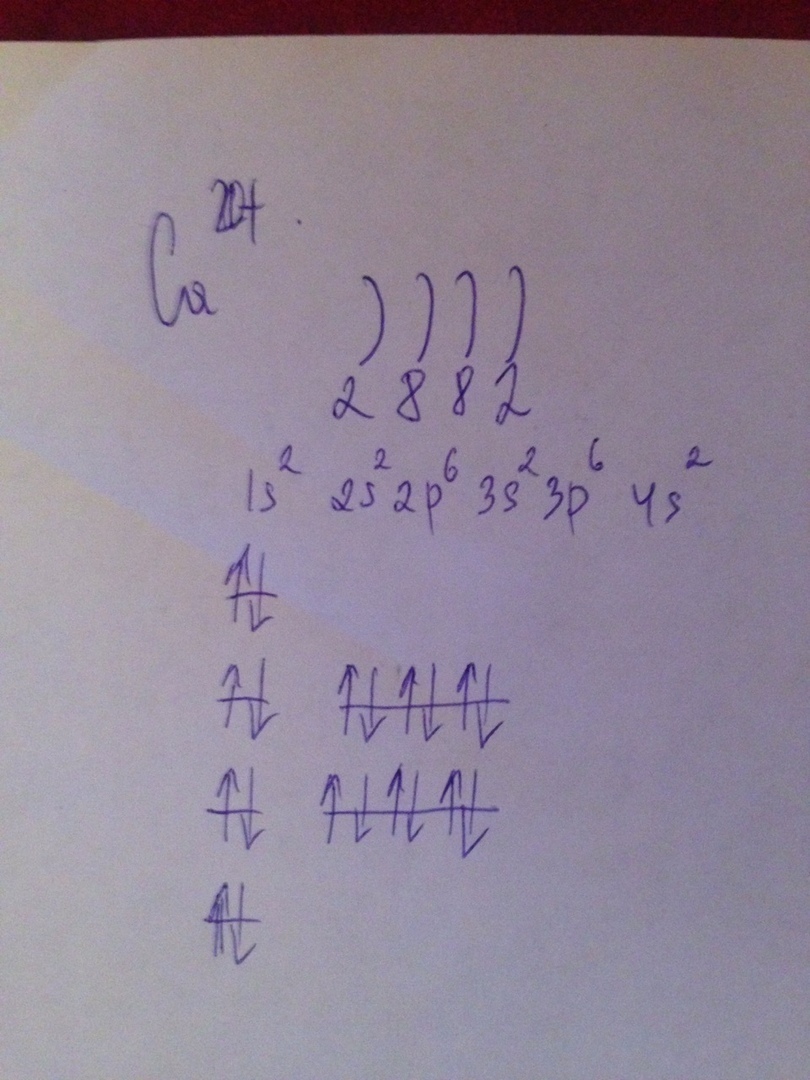 Ca
) ) ) )
2 8 8 2
1s² 2s² 2p⁶ 3s² 3p⁶ 4s²
↑↓
↑↓ ↑↓↑↓↑↓
↑↓ ↑↓↑↓↑↓
↑↓